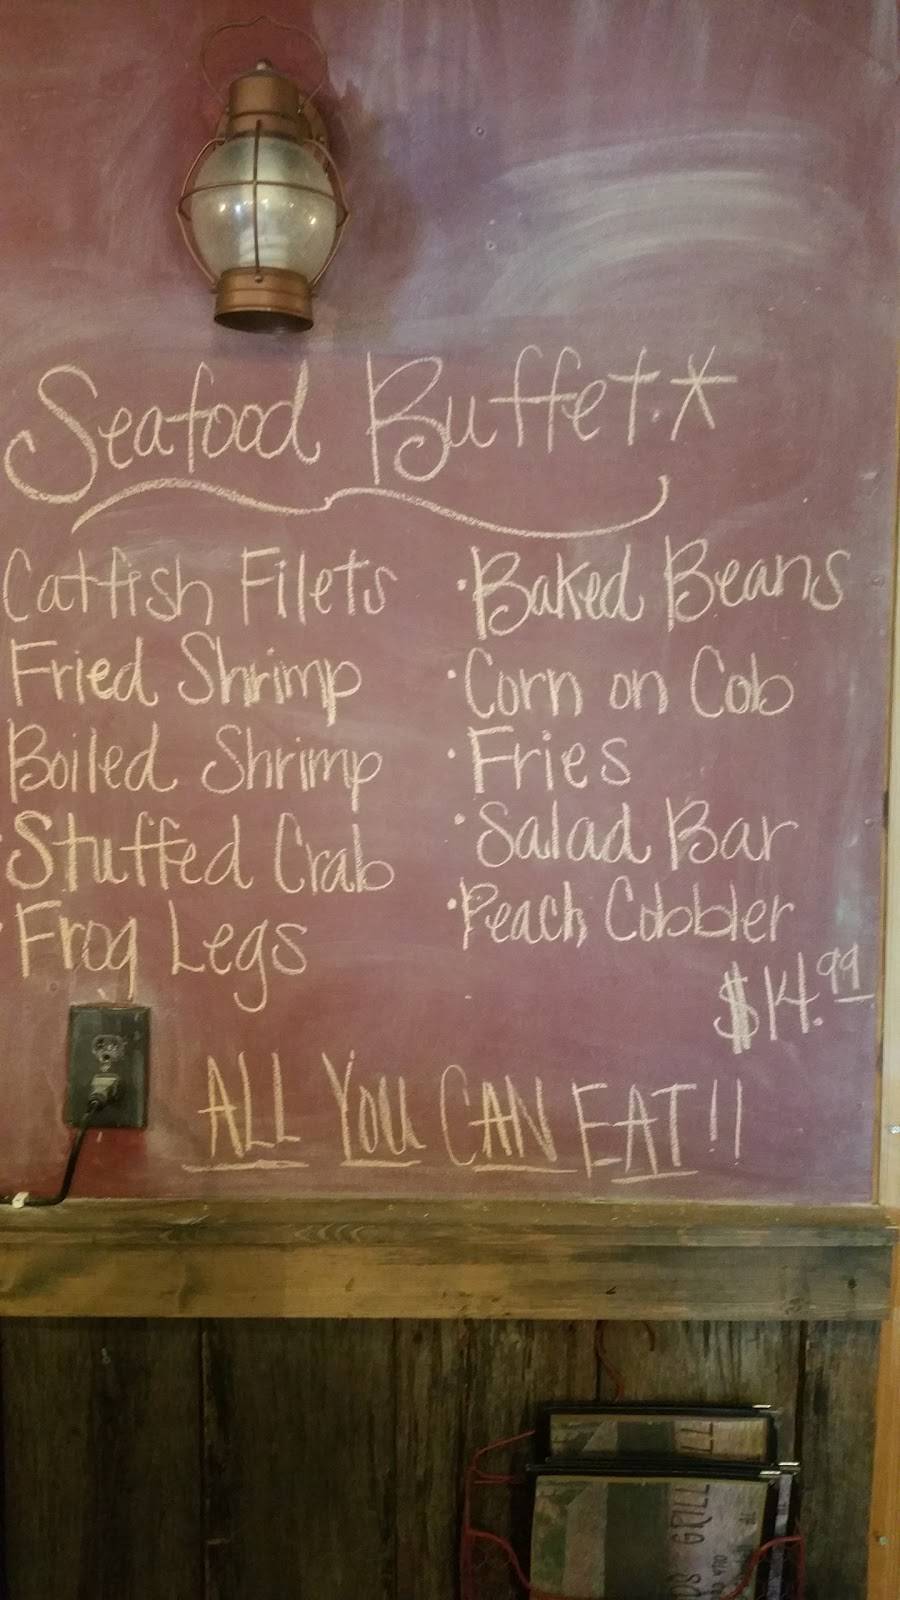 Seafood Buffet.*
Catfish Filets
Fried Shrimp
Boiled Shrimp
· Stuffed Crab
· Frog Legs
· Baked Beans
· Corn on Cob
· Fries
· Salad Bar
· Peach Cobbler
$14.99
ALL YOU CAN EAT!!
GRILL